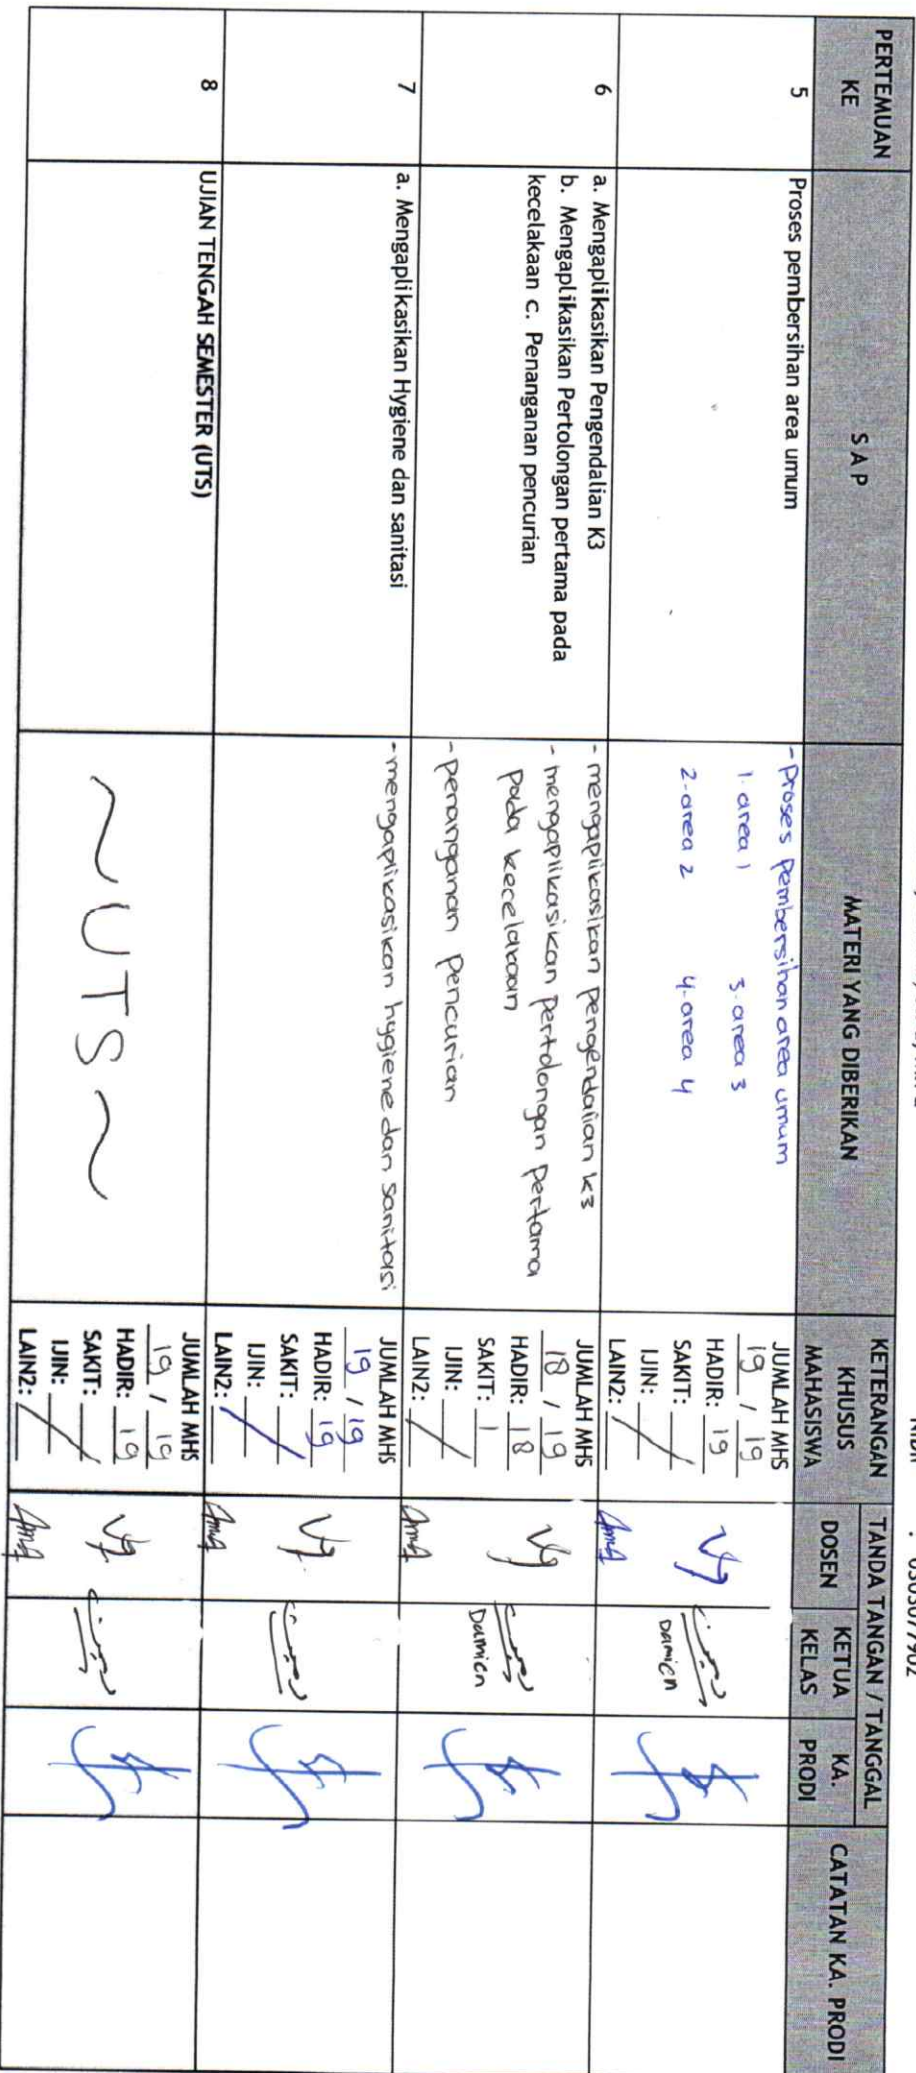 PERTEMUAN KE
S A P
MATERI YANG DIBERIKAN
KETERANGAN KHUSUS MAHASISWA
TANDA TANGAN / TANGGAL
DOSEN
KETUA KELAS
KA. PRODI
CATATAN KA. PRODI
5
Proses pembersihan area umum
- Proses Pembersihan area umum
1. area 1 3. area 3
2. area 2 4. area 4
JUMLAH MHS
19 / 19
HADIR: 19
SAKIT:
IJIN:
LAIN2:
Damien
6
a. Mengaplikasikan Pengendalian K3
b. Mengaplikasikan Pertolongan pertama pada
kecelakaan c. Penanganan pencurian
- mengaplikasikan pengendalian k3
- mengaplikasikan pertolongan pertama
pada kecelakaan
- penanganan pencurian
JUMLAH MHS
18 / 19
HADIR: 18
SAKIT: 1
IJIN:
LAIN2:
Damien
7
a. Mengaplikasikan Hygiene dan sanitasi
- mengaplikasikan hygiene dan sanitasi
JUMLAH MHS
19 / 19
HADIR: 19
SAKIT:
IJIN:
LAIN2:
8
UJIAN TENGAH SEMESTER (UTS)
~ UTS ~
JUMLAH MHS
19 / 19
HADIR: 19
SAKIT:
IJIN:
LAIN2: